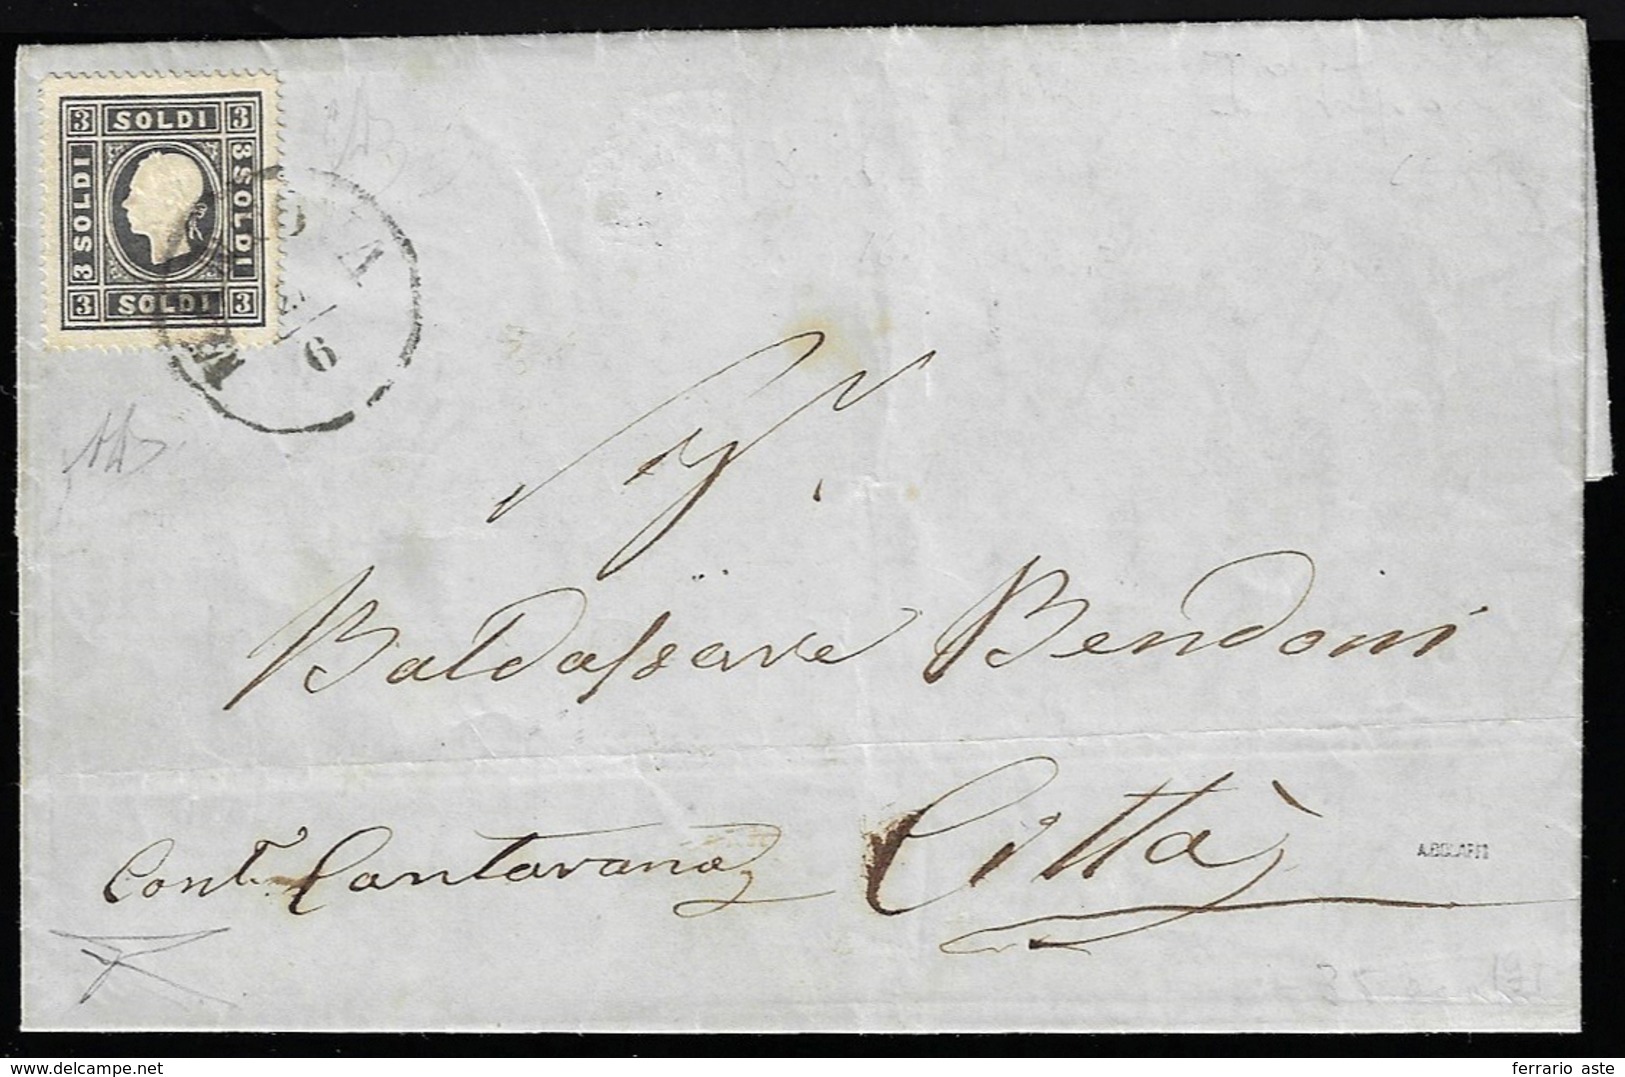 3 SOLDI 3
3 SOLDI
3 SOLDI
3 SOLDI 3
6
Baldassare Bendoni
Cont.ª Cantarana
Città
A.BOLAFFI
delcampe.net
ferrario aste